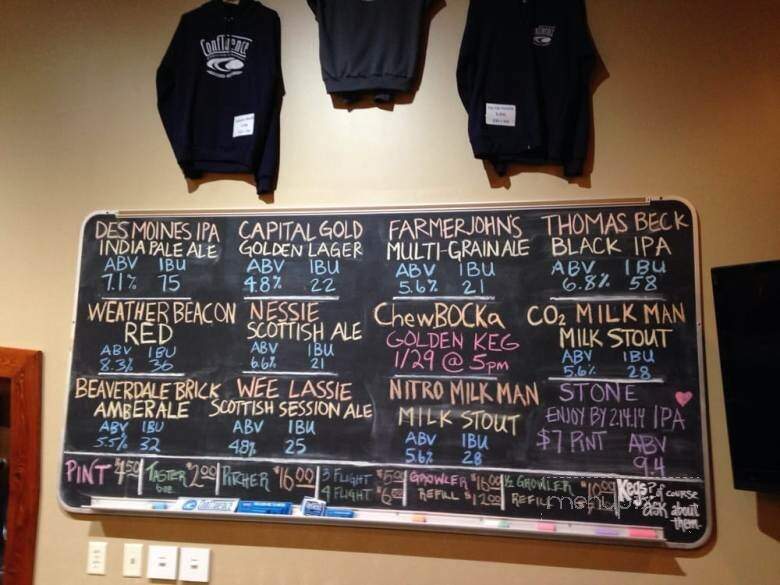 Confluence
DES MOINES IPA
INDIA PALE ALE
ABV IBU
7.1% 75
CAPITAL GOLD
GOLDEN LAGER
ABV IBU
4.8% 22
FARMER JOHN'S
MULTI-GRAIN ALE
ABV IBU
5.6% 21
THOMAS BECK
BLACK IPA
ABV IBU
6.8% 58
WEATHER BEACON
RED
ABV IBU
8.3% 36
NESSIE
SCOTTISH ALE
ABV IBU
6.6% 21
ChewBOCKa
GOLDEN KEG
1/29 @ 5pm
CO2 MILK MAN
MILK STOUT
ABV IBU
5.6% 28
BEAVERDALE BRICK
AMBER ALE
ABV IBU
5.5% 32
WEE LASSIE
SCOTTISH SESSION ALE
ABV IBU
4.8% 25
NITRO MILK MAN
MILK STOUT
ABV IBU
5.6% 28
STONE
ENJOY BY 2.14.14 IPA
$7 PINT ABV
9.4
PINT $4.50
TASTER $2.00
6oz
PITCHER $16.00
3 FLIGHT $5.00
4 FLIGHT $6.50
GROWLER $16.00
REFILL $12.00
½ GROWLER $10.00
REFILL
Kegs? of course
ask about
them